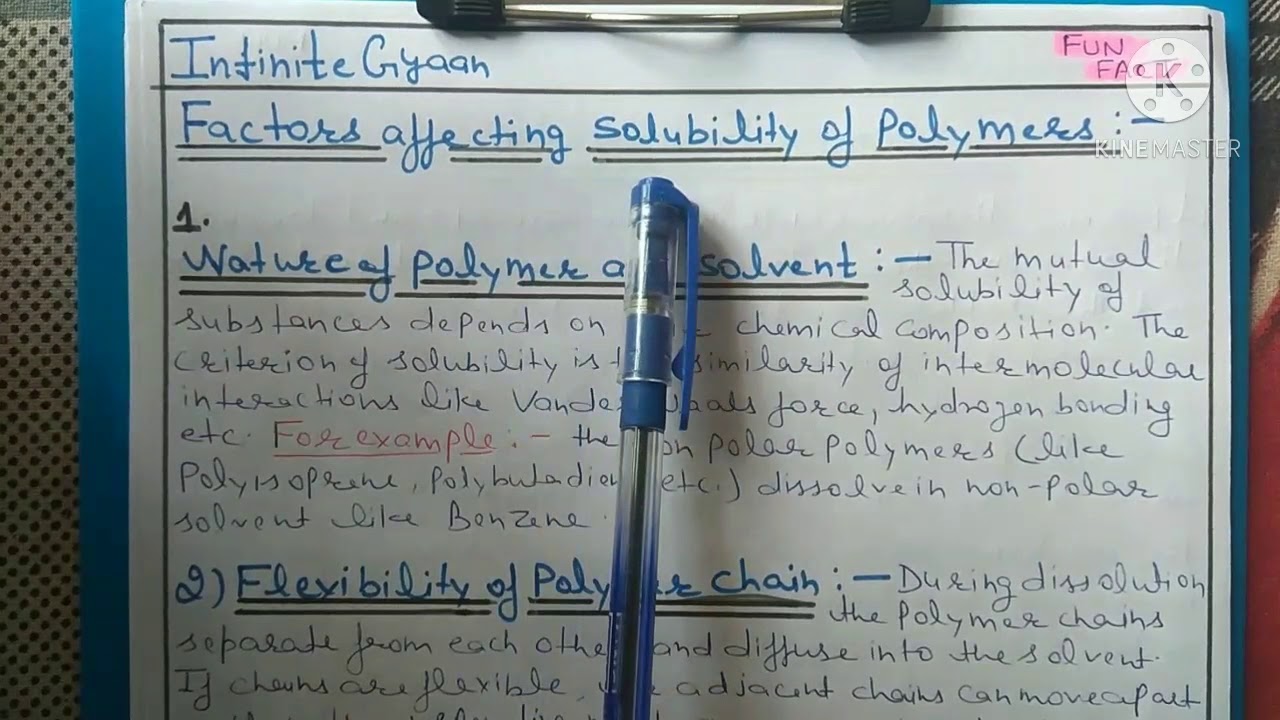 Infinite Gyaan
FUN
FACT
KINEMASTER
Factors affecting solubility of Polymers :-
1.
Nature of polymer a solvent :- The mutual
solubility of
substances depends on chemical composition. The
criterion of solubility is similarity of intermolecular
interactions like Vander Waals force, hydrogen bonding
etc. For example :- the non polar polymers (like
Polyisoprene, Polybutadiene etc.) dissolve in non-polar
solvent like Benzene.
2) Flexibility of Polymer chain :- During dissolution
the polymer chains
separate from each other and diffuse into the solvent.
If chains are flexible, adjacent chains can move apart